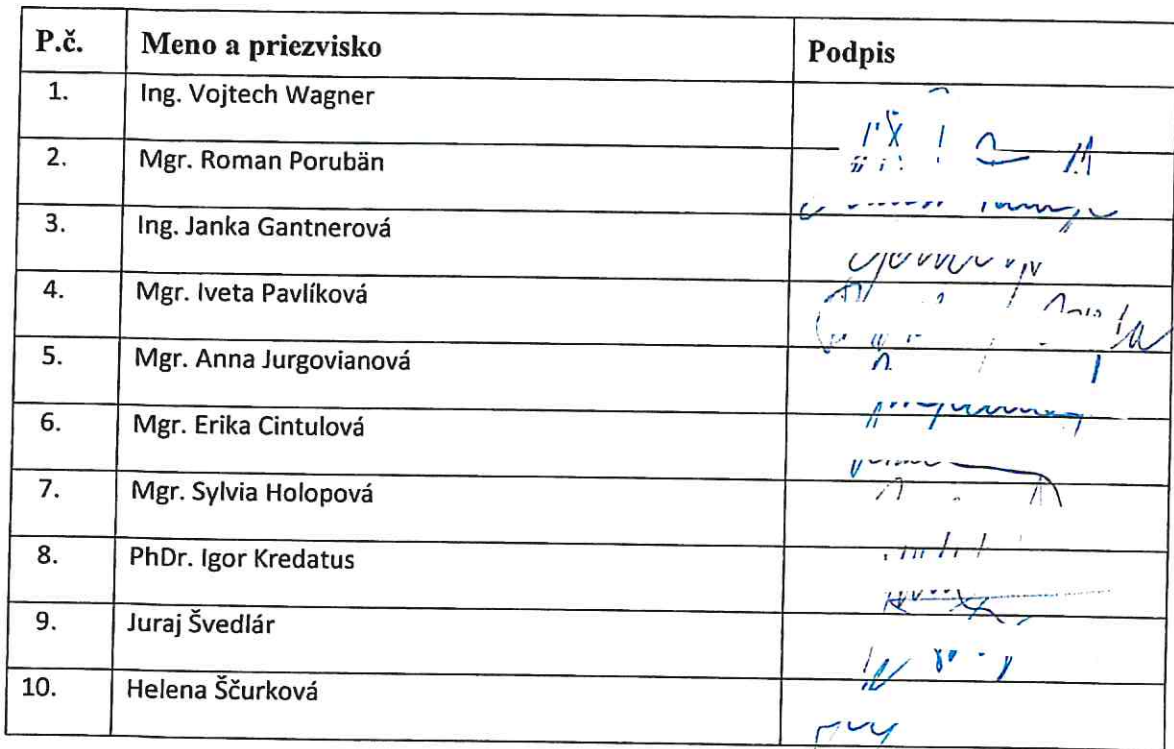 P.č. Meno a priezvisko Podpis
1. Ing. Vojtech Wagner
2. Mgr. Roman Porubän
3. Ing. Janka Gantnerová
4. Mgr. Iveta Pavlíková
5. Mgr. Anna Jurgovianová
6. Mgr. Erika Cintulová
7. Mgr. Sylvia Holopová
8. PhDr. Igor Kredatus
9. Juraj Švedlár
10. Helena Ščurková